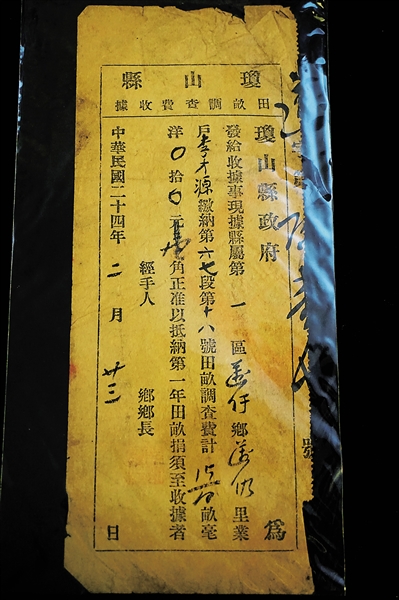 瓊山縣
田畝調查費收據
瓊山縣政府 為
發給收據事現據縣屬第一區 鄉 里業
戶李才源繳納第六七段第十八號田畝調查費計 畝毫
洋〇拾〇元 角正准以抵納第一年田畝捐須至收據者
經手人 鄉鄉長
中華民國二十四年二月廿三日
號